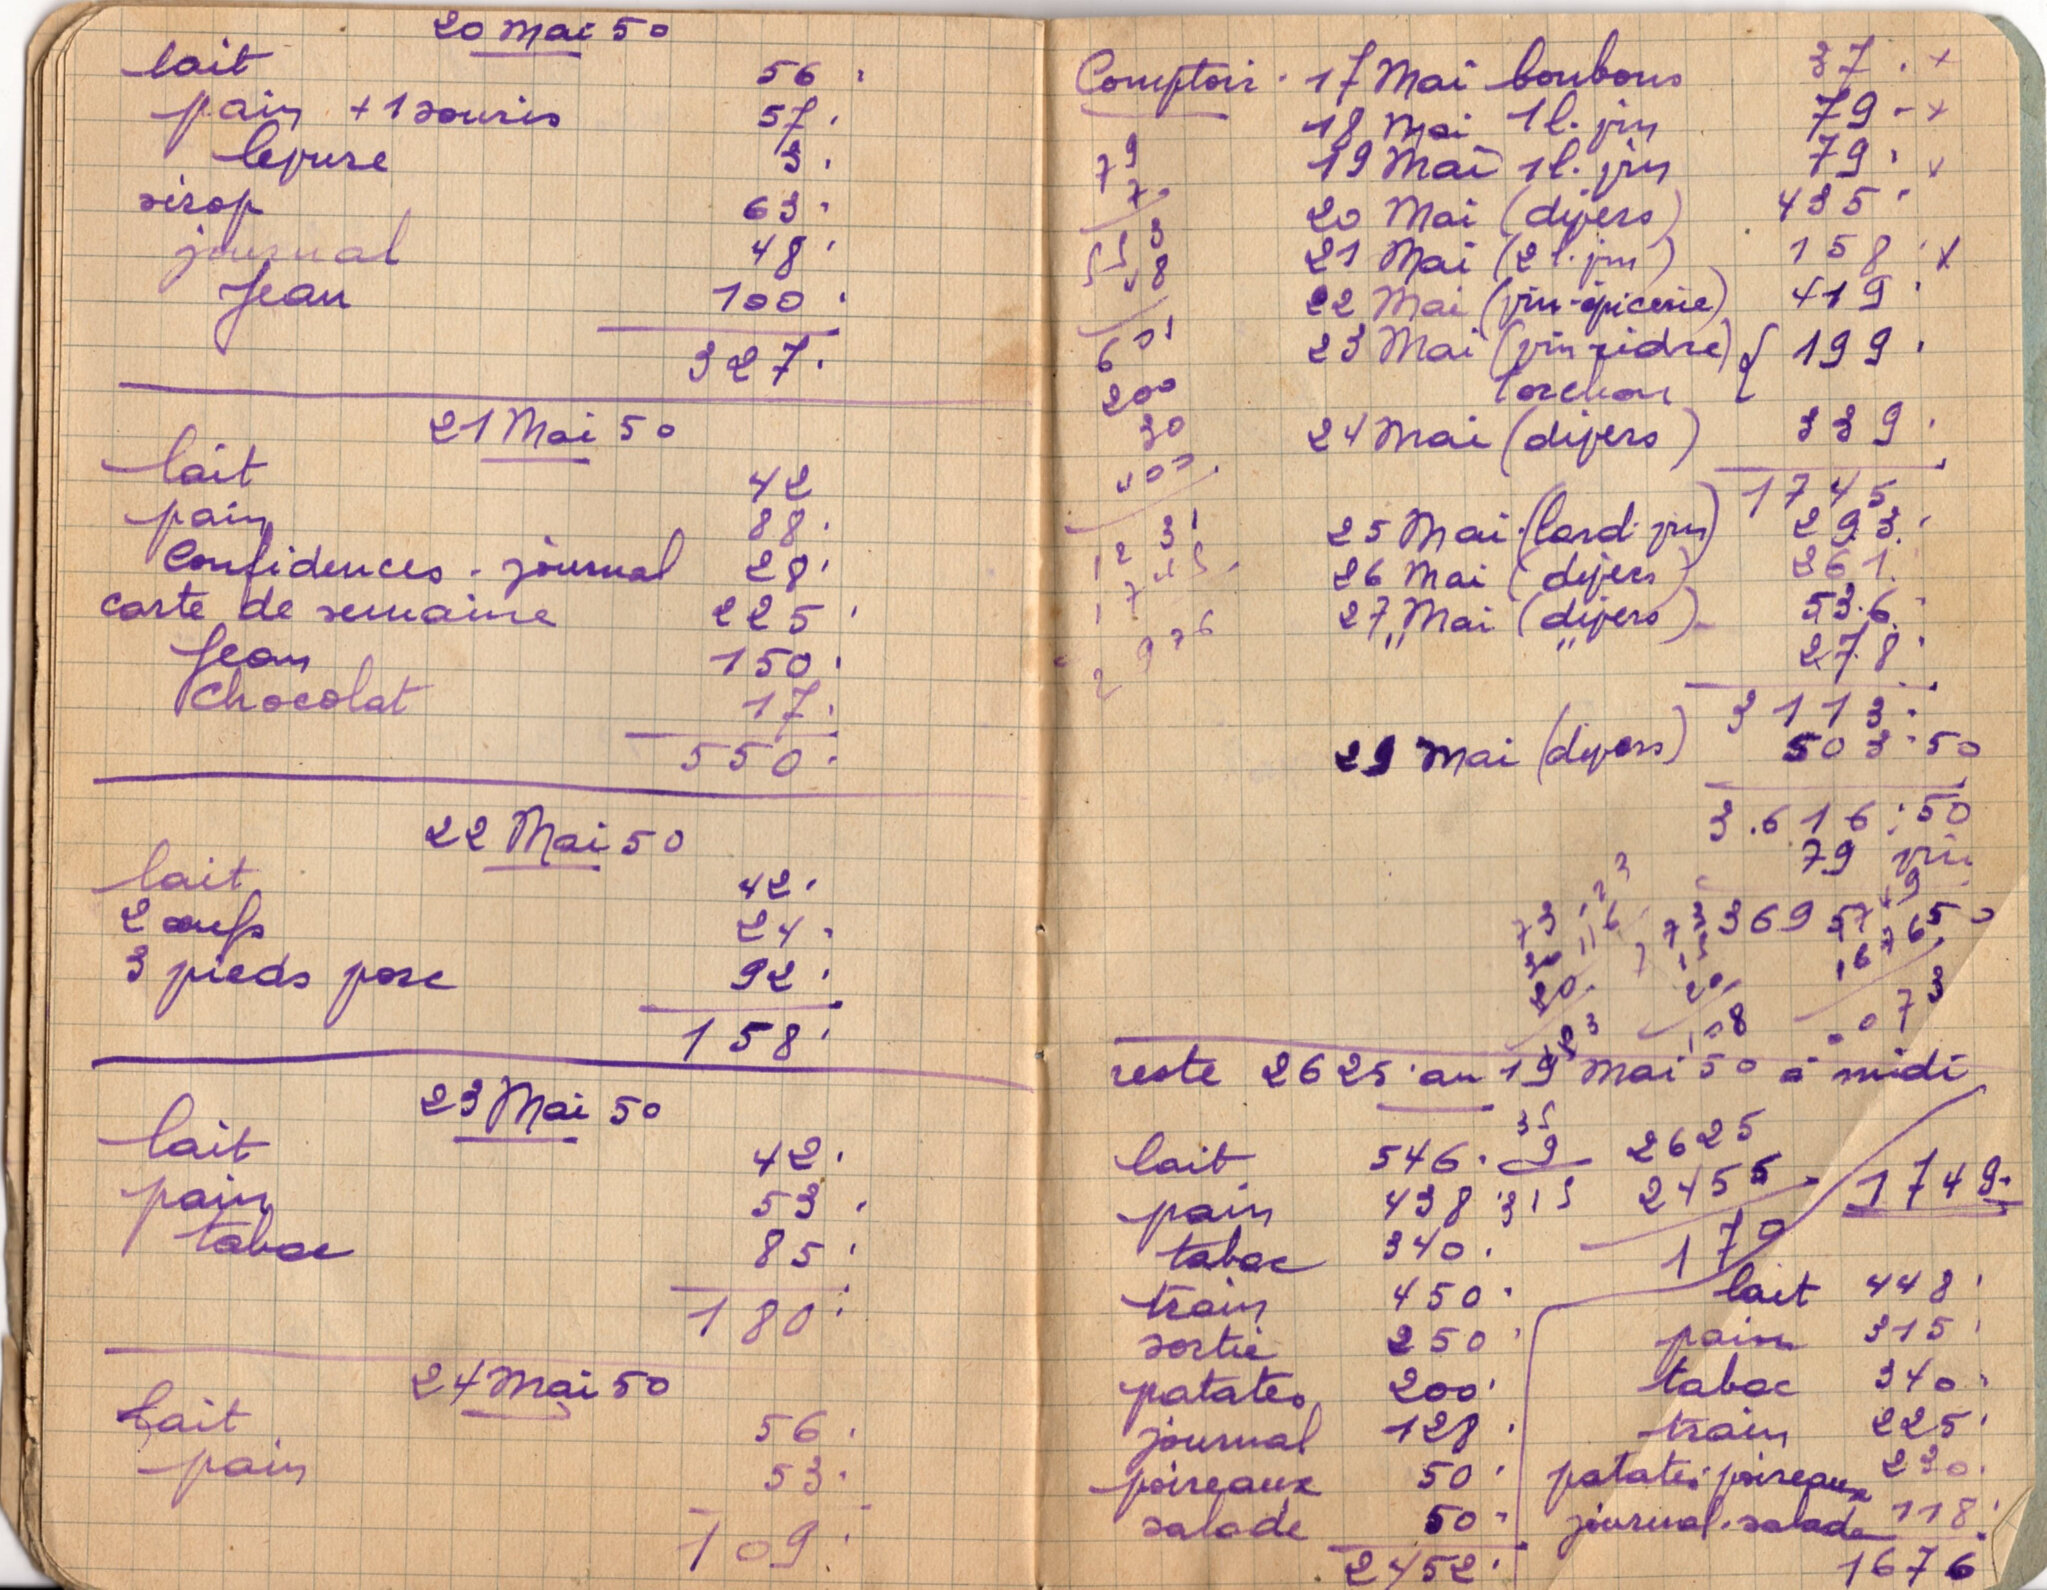 20 Mai 50
lait 56.
pain + 1 souris 57.
levure 3.
sirop 63.
journal 48.
Jean 100.
327.
21 Mai 50
lait 42
pain 88.
Confidences - journal 28.
carte de semaine 225.
Jean 150.
Chocolat 17.
550.
22 Mai 50
lait 42.
2 œufs 24.
3 pieds porc 92.
158.
23 Mai 50
lait 42.
pain 53.
tabac 85.
180.
24 Mai 50
lait 56.
pain 53.
109.
Comptoir. 17 Mai bonbons 37. x
18 Mai 1 l. vin 79 - x
19 Mai 1 l. vin 79. x
20 Mai (divers) 435.
21 Mai (2 l. vin) 158. x
22 Mai (vin-épicerie) 419.
23 Mai (vin cidre) { 199.
torchon
24 Mai (divers) 339.
1745.
25 Mai (lard vin) 293.
26 Mai (divers) 261.
27 Mai (divers) 536.
" " 278.
3113.
29 Mai (divers) 503.50
3.616.50
79 vin
369 5.50
79
7
553
48
601
200
30
400
1231
1745
2976
reste 2625 au 19 Mai 50 à midi
lait 546.
pain 438.
tabac 340.
train 450.
sortie 250.
patates 200.
journal 128.
poireaux 50.
salade 50.
2452.
35
9
315
2625
2455
170
1749.
lait 448.
pain 315.
tabac 340.
train 225.
patates. poireaux 230.
journal. salade 118.
1676